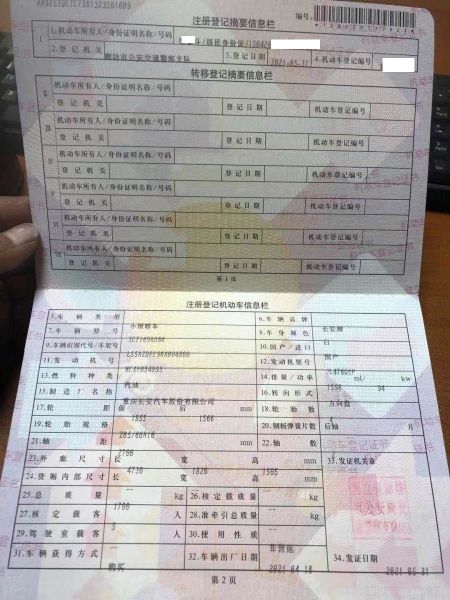 注册登记摘要信息栏
编号:
Ⅰ 1.机动车所有人/身份证明名称/号码 斗/居民身份证/
2.登记机关 廊坊市公安交通警察支队 3.登记日期 2021-05-31 4.机动车登记编号
转移登记摘要信息栏
Ⅱ 机动车所有人/身份证明名称/号码
登记机关 登记日期 机动车登记编号
Ⅲ 机动车所有人/身份证明名称/号码
登记机关 登记日期 机动车登记编号
Ⅳ 机动车所有人/身份证明名称/号码
登记机关 登记日期 机动车登记编号
Ⅴ 机动车所有人/身份证明名称/号码
登记机关 登记日期 机动车登记编号
Ⅵ 机动车所有人/身份证明名称/号码
登记机关 登记日期 机动车登记编号
Ⅶ 机动车所有人/身份证明名称/号码
登记机关 登记日期 机动车登记编号
第1页
注册登记机动车信息栏
5.车辆类型 小型轿车 6.车辆品牌 长安牌
7.车辆型号 8.车身颜色 白
9.车辆识别代号/车架号 10.国产/进口 国产
11.发动机号 12.发动机型号
13.燃料种类 汽油 14.排量/功率 1598 ml/ 94 kw
15.制造厂名称 重庆长安汽车股份有限公司 16.转向形式 方向盘
17.轮距 前 1555 后 1566 mm 18.轮胎数 4
19.轮胎规格 205/60R16 20.钢板弹簧片数 后轴 片
21.轴距 2700 mm 22.轴数 2
23.外廓尺寸 长 4730 宽 1820 高 1505 mm 33.发证机关章
24.货厢内部尺寸 长 宽 高 mm
25.总质量 1700 kg 26.核定载质量 -- kg
27.核定载客 5 人 28.准牵引总质量 -- kg
29.驾驶室载客 -- 人 30.使用性质 非营运
31.车辆获得方式 购买 32.车辆出厂日期 2021-04-18 34.发证日期 2021-05-31
第2页